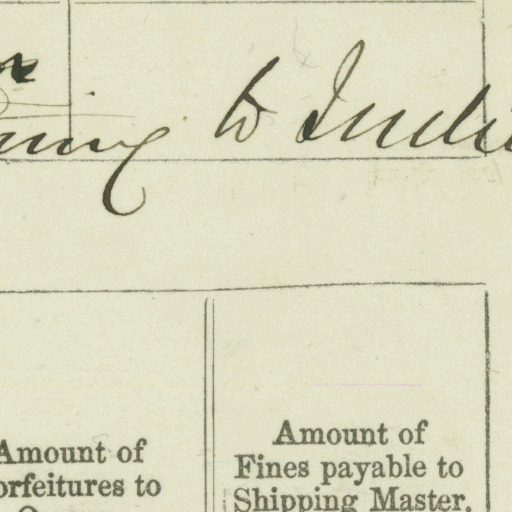 to Indi
Amount of
orfeitures to
Amount of
Fines payable to
Shipping Master.